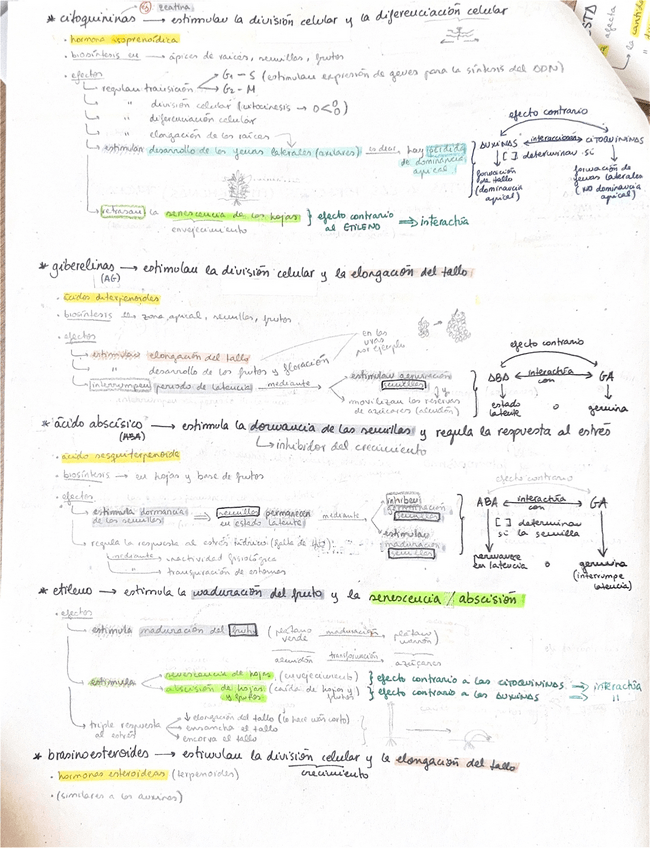 ej zeatina
* citoquininas → estimulan la división celular y la diferenciación celular
· hormona isoprenoidica
· biosíntesis en → ápices de raíces, semillas, frutos
· efectos
regulan transición G1 - S (estimulan expresión de genes para la síntesis del ADN)
G2 - M
" división celular (citocinesis →
" diferenciación celular
" elongación de las raíces
estimulan desarrollo de las yemas laterales (axilares) es decir, hay pérdida de dominancia apical
efecto contrario
AUXINAS interacciona CITOQUININAS
[ ] determinan si
formación de tallo (dominancia apical)
formación de yemas laterales (NO dominancia apical)
retrasan la senescencia de las hojas } efecto contrario al ETILENO ⇒ interactúa
envejecimiento
* giberelinas → estimulan la división celular y la elongación del tallo
(AG)
· ácidos diterpenoides
· biosíntesis en zona apical, semillas, frutos
· efectos
en las uvas por ejemplo
estimulan elongación del tallo
" desarrollo de los frutos y floración
interrumpen periodo de latencia mediante
estimulan germinación semillas
movilizan las reservas de azúcares (almidón)
efecto contrario
ABA interactúa con GA
estado latente o germina
* ácido abscísico → estimula la dormancia de las semillas y regula la respuesta al estrés
(ABA)
inhibidor del crecimiento
· ácido sesquiterpenoide
· biosíntesis → en hojas y base de frutos
· efectos
estimula dormancia de las semillas ⇒ semillas permanecen en estado latente mediante
inhiben germinación semillas
estimulan maduración semillas
efecto contrario
ABA interactúa con GA
[ ] determinan si la semilla
permanece en latencia o germina (interrumpe latencia)
regula la respuesta al estrés hídrico (falta de
mediante → inactividad fisiológica
" → transpiración de estomas
* etileno → estimula la maduración del fruto y la senescencia / abscisión
· efectos
estimula maduración del fruto (plátano verde maduración plátano marrón)
almidón transformación azúcares
estimula
senescencia de hojas (envejecimiento) } efecto contrario a las CITOQUININAS ⇒ interactúa
abscisión de hojas y frutos (caída de hojas y frutos) } efecto contrario a las AUXINAS ⇒ "
triple respuesta al estrés
↓ elongación del tallo (lo hace más corto)
ensancha el tallo
encorva el tallo
* brasinoesteroides → estimulan la división celular y la elongación del tallo
crecimiento
· hormonas esteroideas (terpenoides)
· (similares a las auxinas)